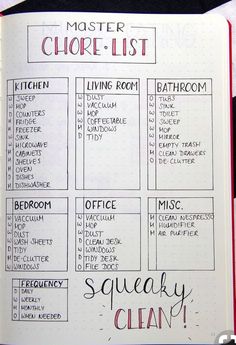 MASTER
CHORE · LIST
KITCHEN
W SWEEP
W MOP
D COUNTERS
M FRIDGE
M FREEZER
W SINK
M MICROWAVE
M CABINETS
M SHELVES
M OVEN
D DISHES
M DISHWASHER
LIVING ROOM
W DUST
W VACCUUM
W MOP
W COFFEETABLE
M WINDOWS
D TIDY
BATHROOM
O TUBS
W SINK
W TOILET
W SWEEP
W MOP
W MIRROR
W EMPTY TRASH
M CLEAN DRAWERS
O DE-CLUTTER
BEDROOM
W VACCUUM
W MOP
W DUST
W WASH SHEETS
D TIDY
M DE-CLUTTER
W WINDOWS
OFFICE
W VACCUUM
W MOP
W DUST
D CLEAN DESK
M WINDOWS
D TIDY DESK
O FILE DOCS
MISC.
M CLEAN NESPRESSO
M HUMIDIFIER
M AIR PURIFIER
FREQUENCY
D DAILY
W WEEKLY
M MONTHLY
O WHEN NEEDED
squeaky
CLEAN!